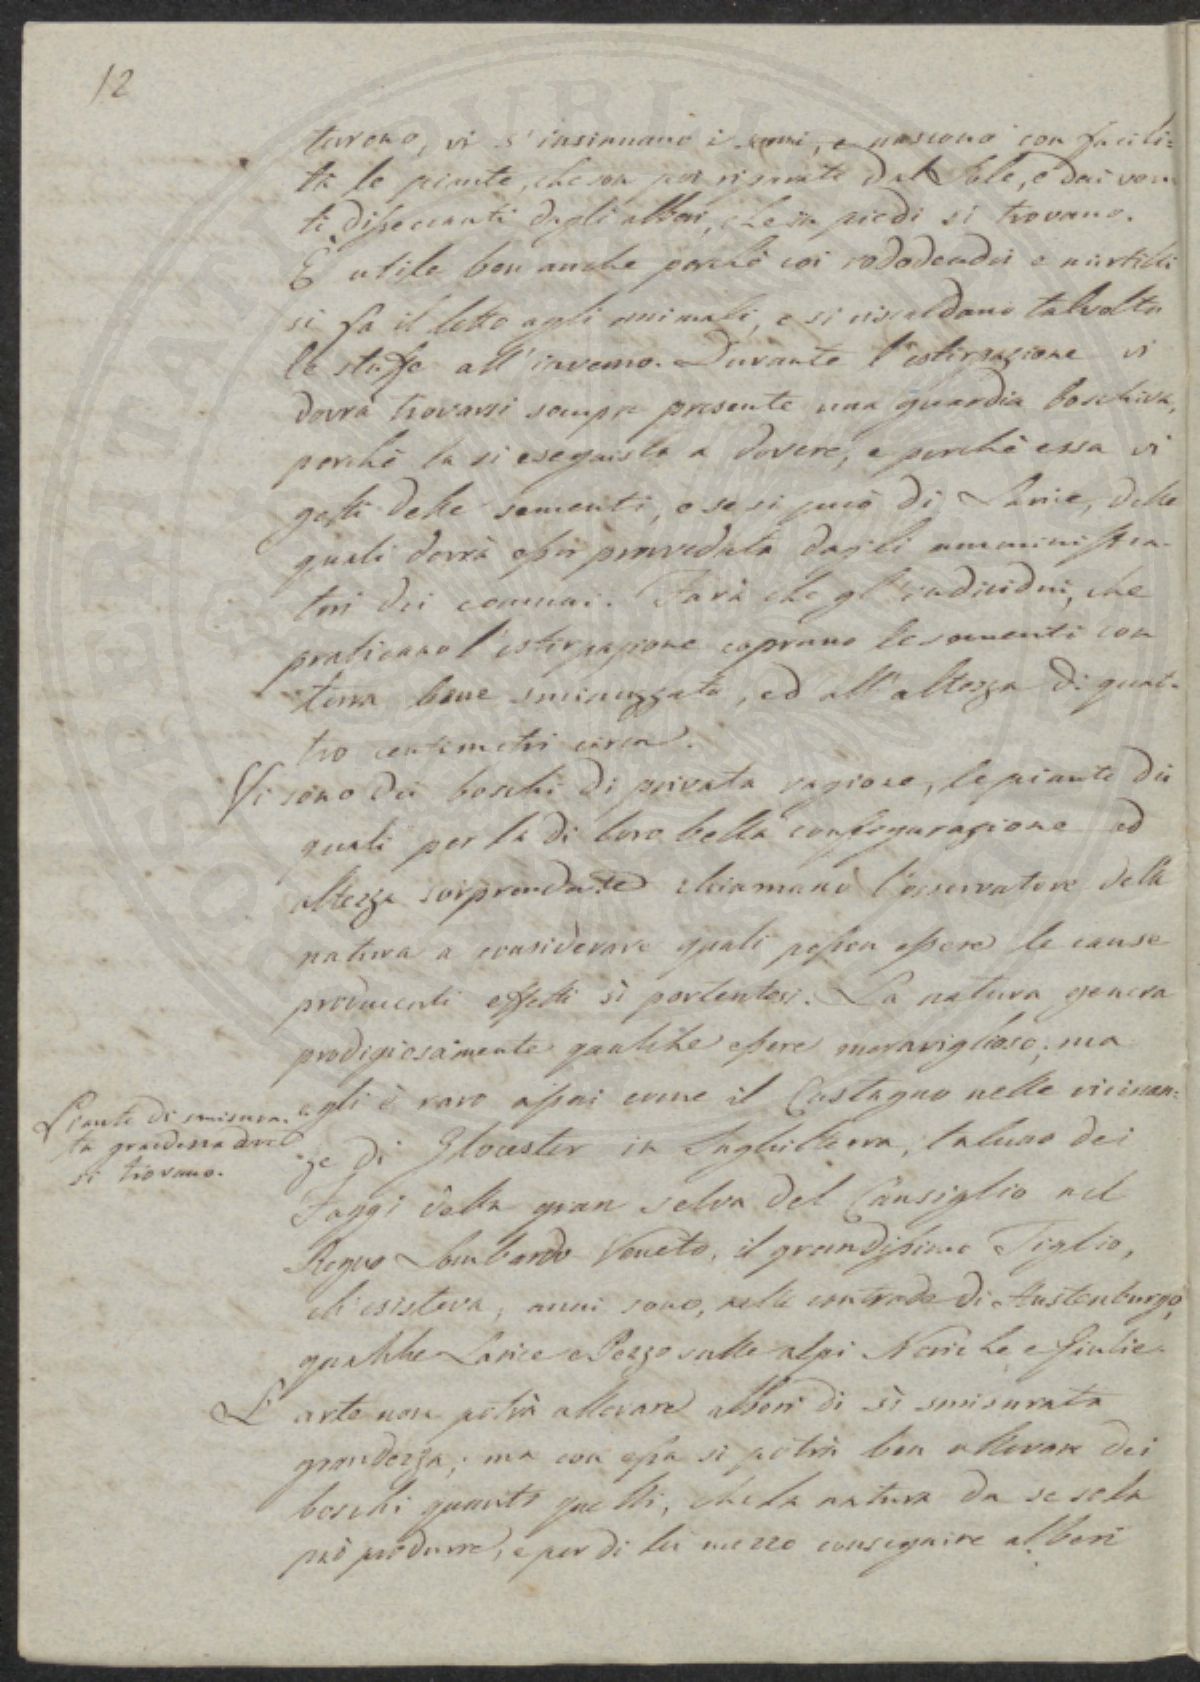 12
terreno, vi s'insinuano i semi, e nascono con facili=
tà le piante, che son poi riparate dal Sole, e dai ven
ti disseccanti dagli alberi, che in piedi si trovano.
È utile ben anche perchè coi rododendri e mirtilli
si fa il letto agli animali, e si riscaldano talvolta
le stuffe all'inverno. Durante l'estirpazione vi
dovrà trovarsi sempre presente una guardia boschiva,
perchè la si eseguisca a dovere, e perchè essa vi
getti delle sementi, e se si può di Larice, delle
quali dovrà esser provveduta dagli amministra-
tori dei comuni. Farà che gl'individui, che
praticano l'estirpazione coprano le sementi con
terra bene sminuzzata, ed all'altezza di quat-
tro centimetri circa.
Vi sono dei boschi di privata ragione, le piante dei
quali per la di loro bella configurazione ed
altezza sorprendente chiamano l'osservatore della
natura a considerare quali posson essere le cause
producenti effetti sì portentosi. La natura genera
prodigiosamente qualche essere meraviglioso; ma
Piante di smisura-
ta grandezza dove
si trovano.
egli è raro assai come il Castagno nelle vicinan=
ze di Glocester in Inghilterra, taluno dei
Faggi della gran selva del Cansiglio nel
Regno Lombardo Veneto, il grandissimo Tiglio,
ch'esisteva, anni sono, nelle contrade di Austenburgo,
qualche Larice e Pezzo sulle alpi Noriche e Giulie.
L'arte non potrà allevare alberi di sì smisurata
grandezza; ma con essa si potrà ben allevare dei
boschi quanto quelli, che la natura da se sola
può produrre, e per di lei mezzo conseguire alberi